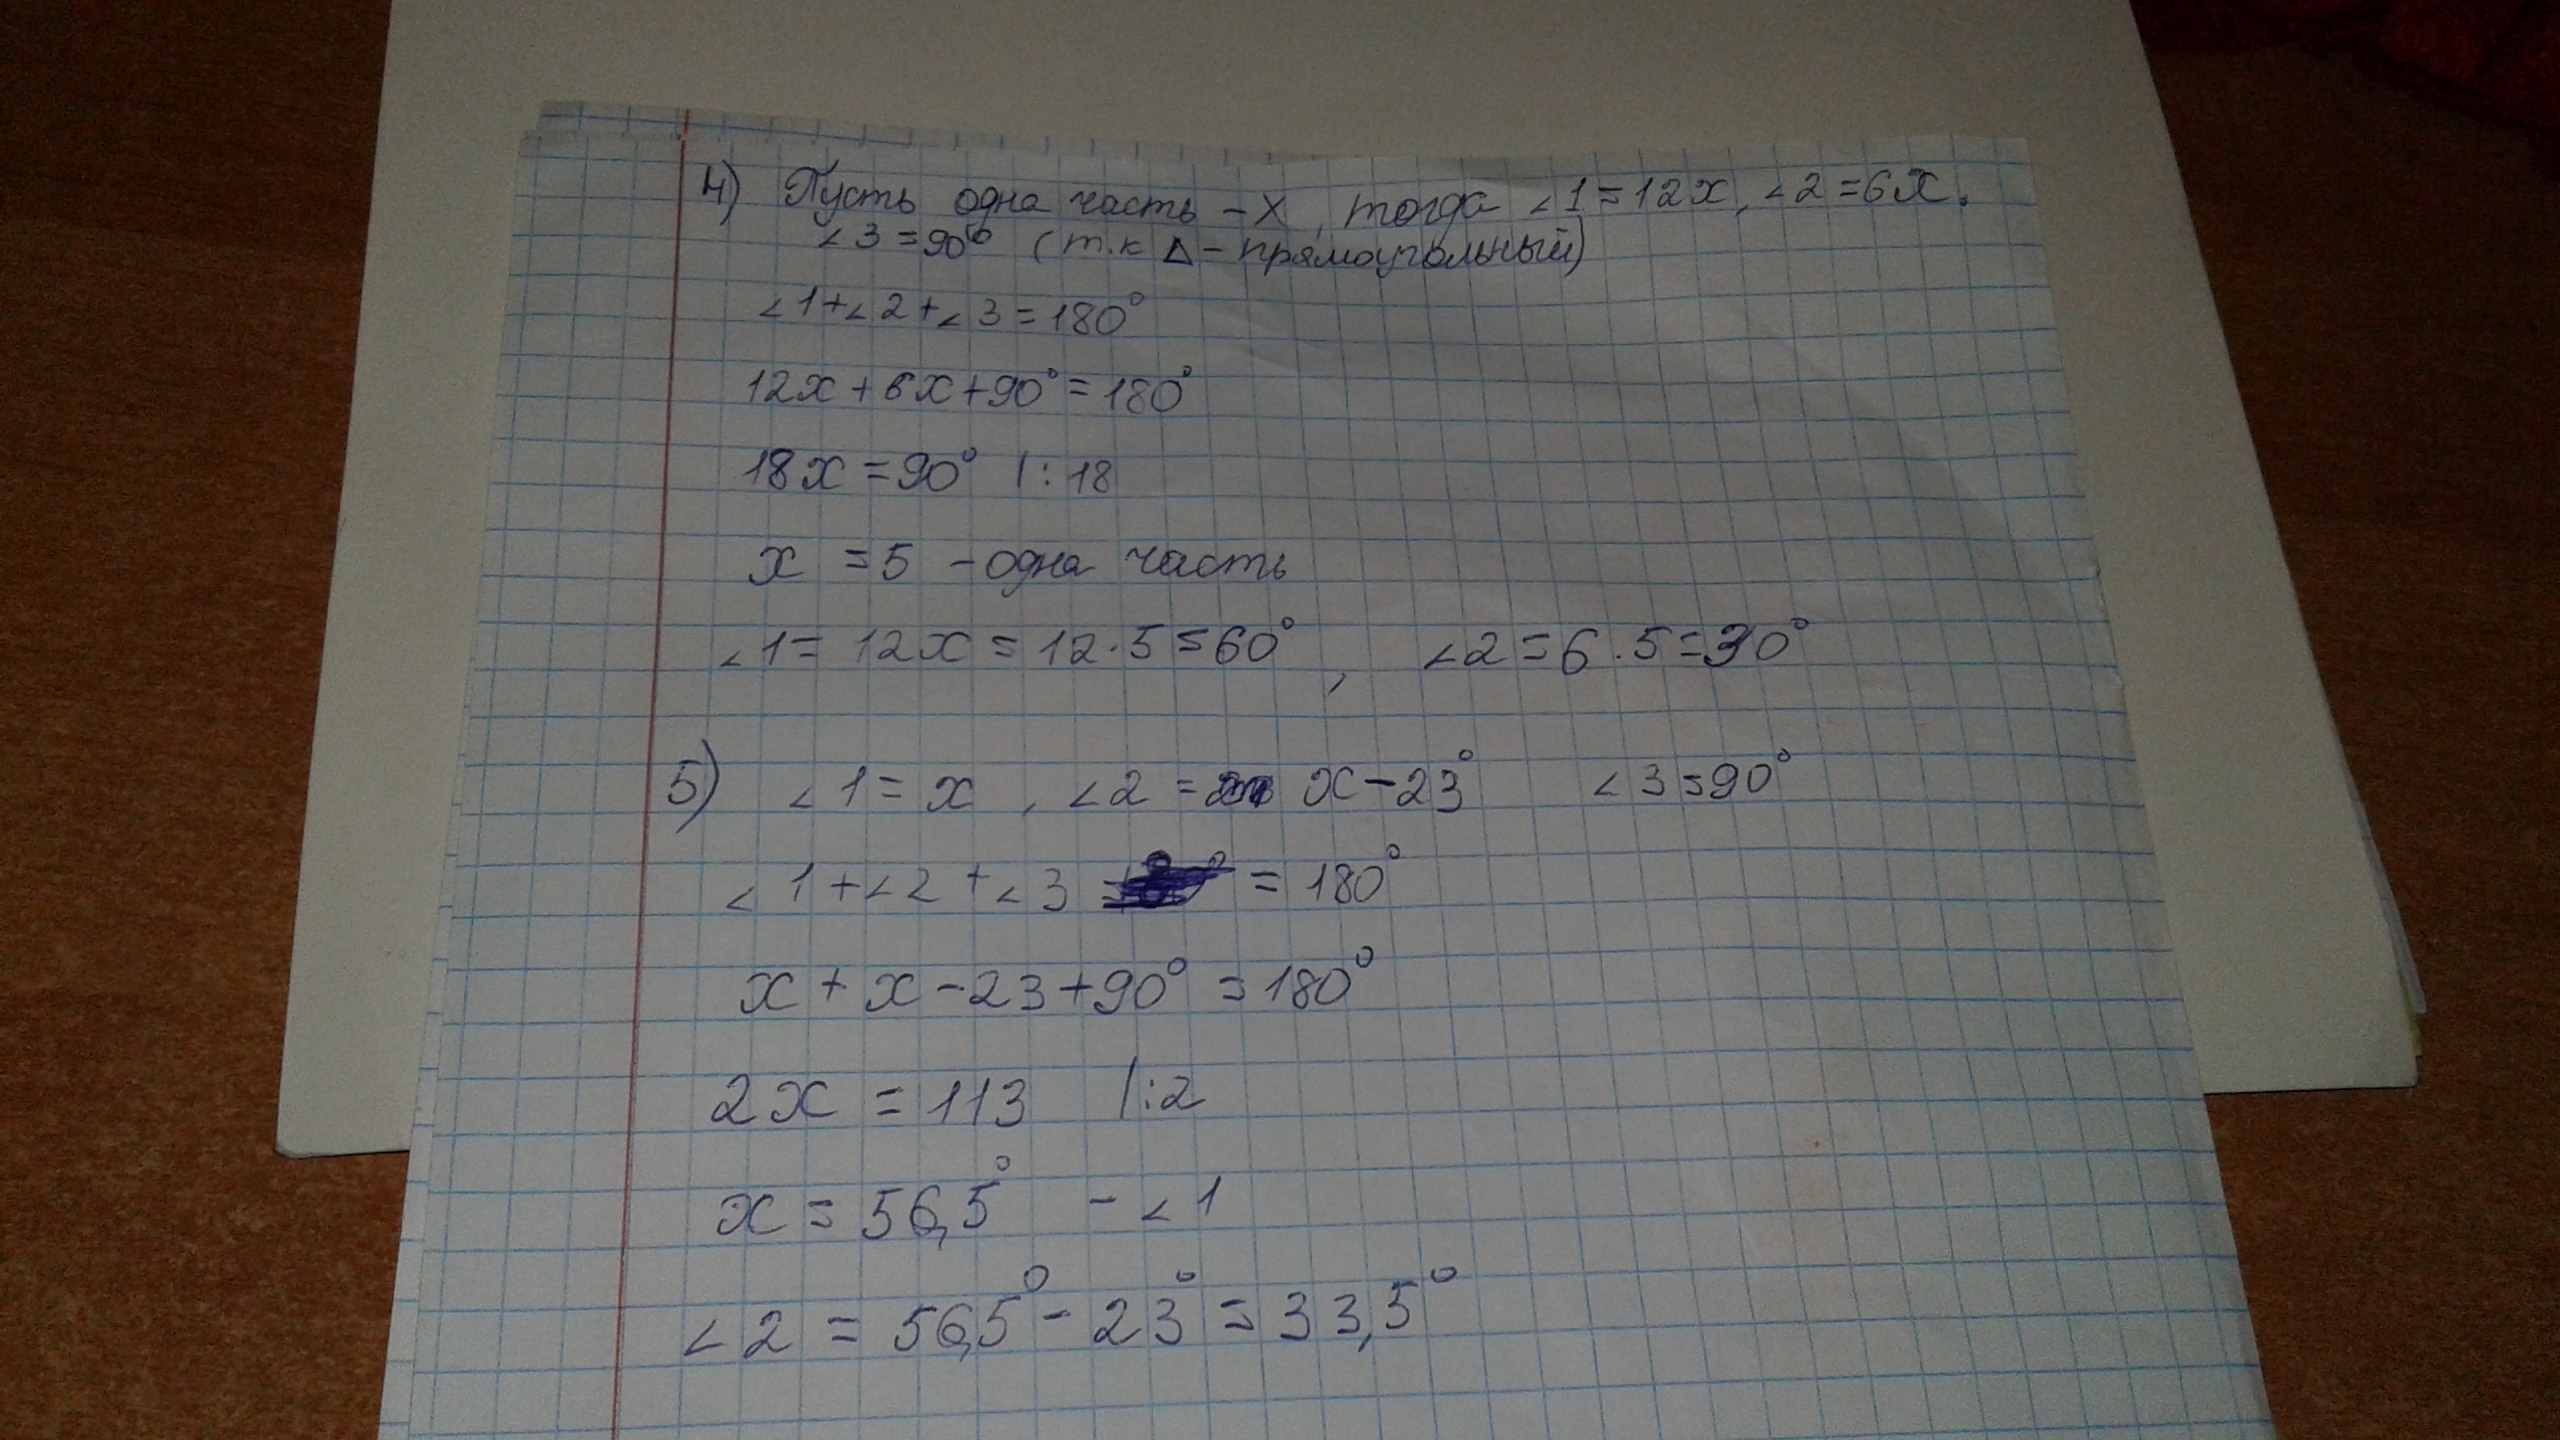 4) Пусть одна часть - х, тогда ∠1=12х, ∠2=6х.
∠3=90° (т.к Δ - прямоугольный)
∠1+∠2+∠3=180°
12х+6х+90°=180°
18х=90° |:18
х =5 - одна часть
∠1= 12х=12·5=60°, ∠2=6·5=30°
5) ∠1= х, ∠2 = х-23° ∠3=90°
∠1+∠2+∠3 = 180°
х+х-23+90°=180°
2х = 113 |:2
х=56,5° - ∠1
∠2 = 56,5°-23°=33,5°